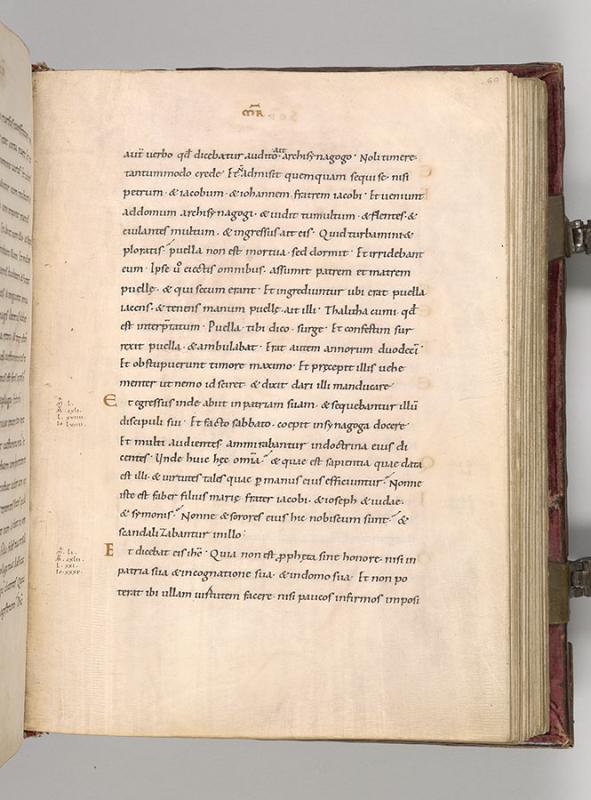 60
MR
aut̄ verbo qđ dicebatur audito ait archisynagogo · Noli timere
tantummodo crede · Et n̄ admisit quemquam se qui se · nisi
petrum · & iacobum · & iohannem fratrem iacobi · Et veniunt
ad domum archisynagogi · & vidit tumultum · & flentes · &
eiulantes multum · & ingressus ait eis · Quid turbamini &
ploratis · puella non est mortua · sed dormit · Et irridebant
eum · Ipse ū eiectis omnibus · assumit patrem et matrem
puellę · & qui secum erant · Et ingrediuntur ubi erat puella
iacens · & tenens manum puellę · ait illi · Thalitha cumi · qđ
est interp̄tatum · Puella tibi dico · surge · Et confestim sur
rexit puella · & ambulabat · Erat autem annorum duodeci̅ ·
Et obstupuerunt timore maximo · Et pręcepit illis vehe
menter ut nemo id sciret · & dixit dari illi manducare
Et egressus inde abiit in patriam suam · & sequebantur illū
discipuli sui · Et facto sabbato · coepit in synagoga docere
Et multi audientes ammirabantur in doctrina eius di
centes · Unde huic hęc omīa · & quae est sapientia quae data
est illi · & virtutes tales quae ꝑ manus eius efficiuntur · Nonne
iste est faber filius marię · frater iacobi · & ioseph & iudae ·
& symonis · Nonne & sorores eius hic nobiscum sunt · &
scandalizabantur in illo ·
Et dicebat eis ihc̄ · Quia non est ꝓpheta sine honore · nisi in
patria sua & in cognatione sua · & in domo sua · Et non po
terat ibi ullam virtutem facere · nisi paucos infirmos imposi